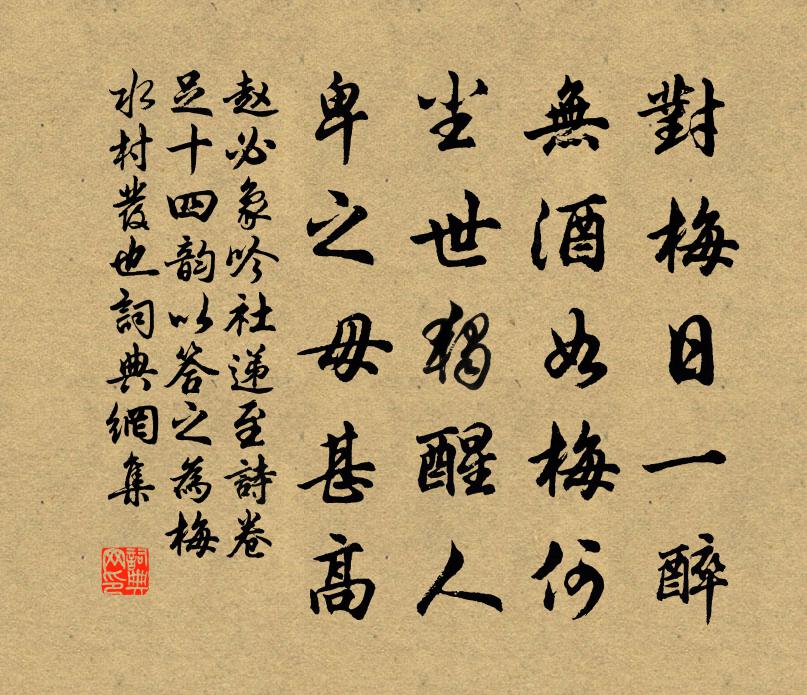 對梅日一醉
無酒如梅何
坐世獨醒人
卑之毋甚高
趙必象吟社遞至詩卷
足十四韵以答之為梅
水村發也詞典網集
詞典网印